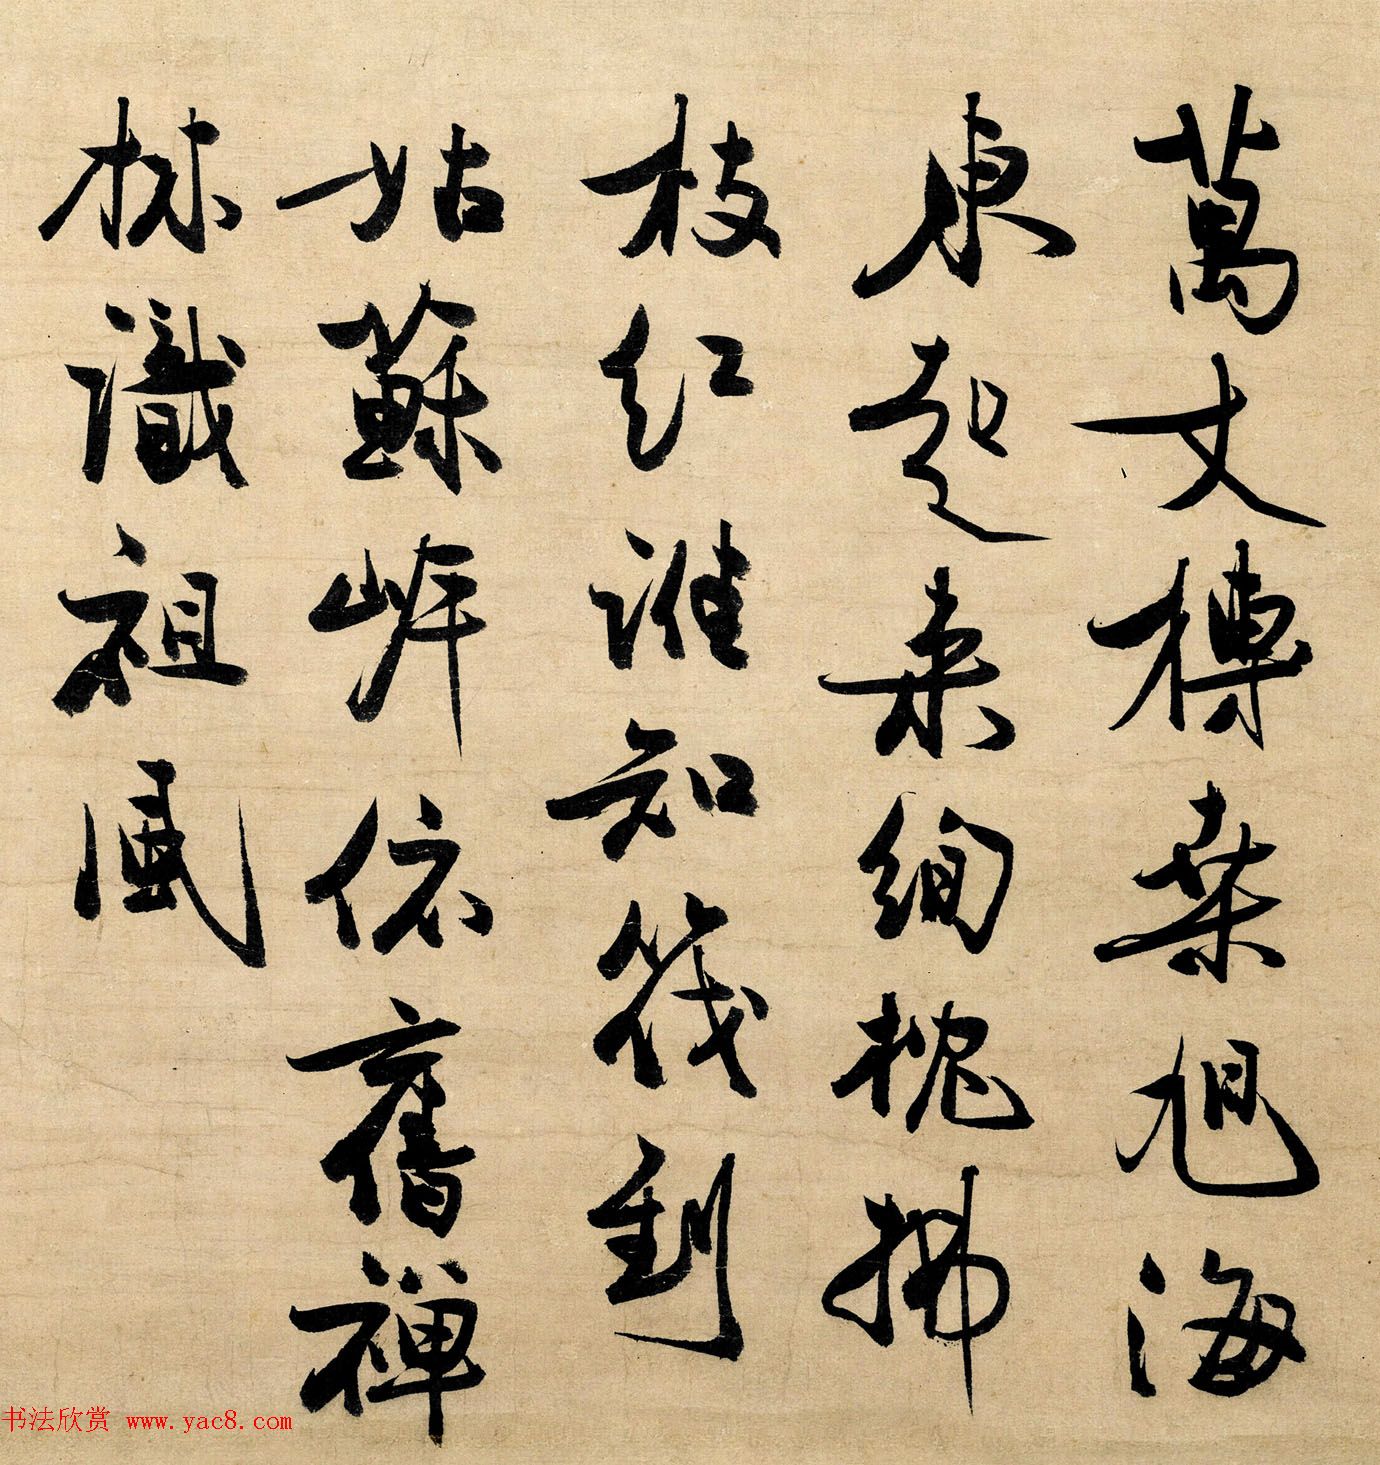 萬丈榑桒旭海
東起来絢枕拂
枝红誰知筏到
姑蘇岸依舊禅
林識祖風
书法欣赏 www.yac8.com